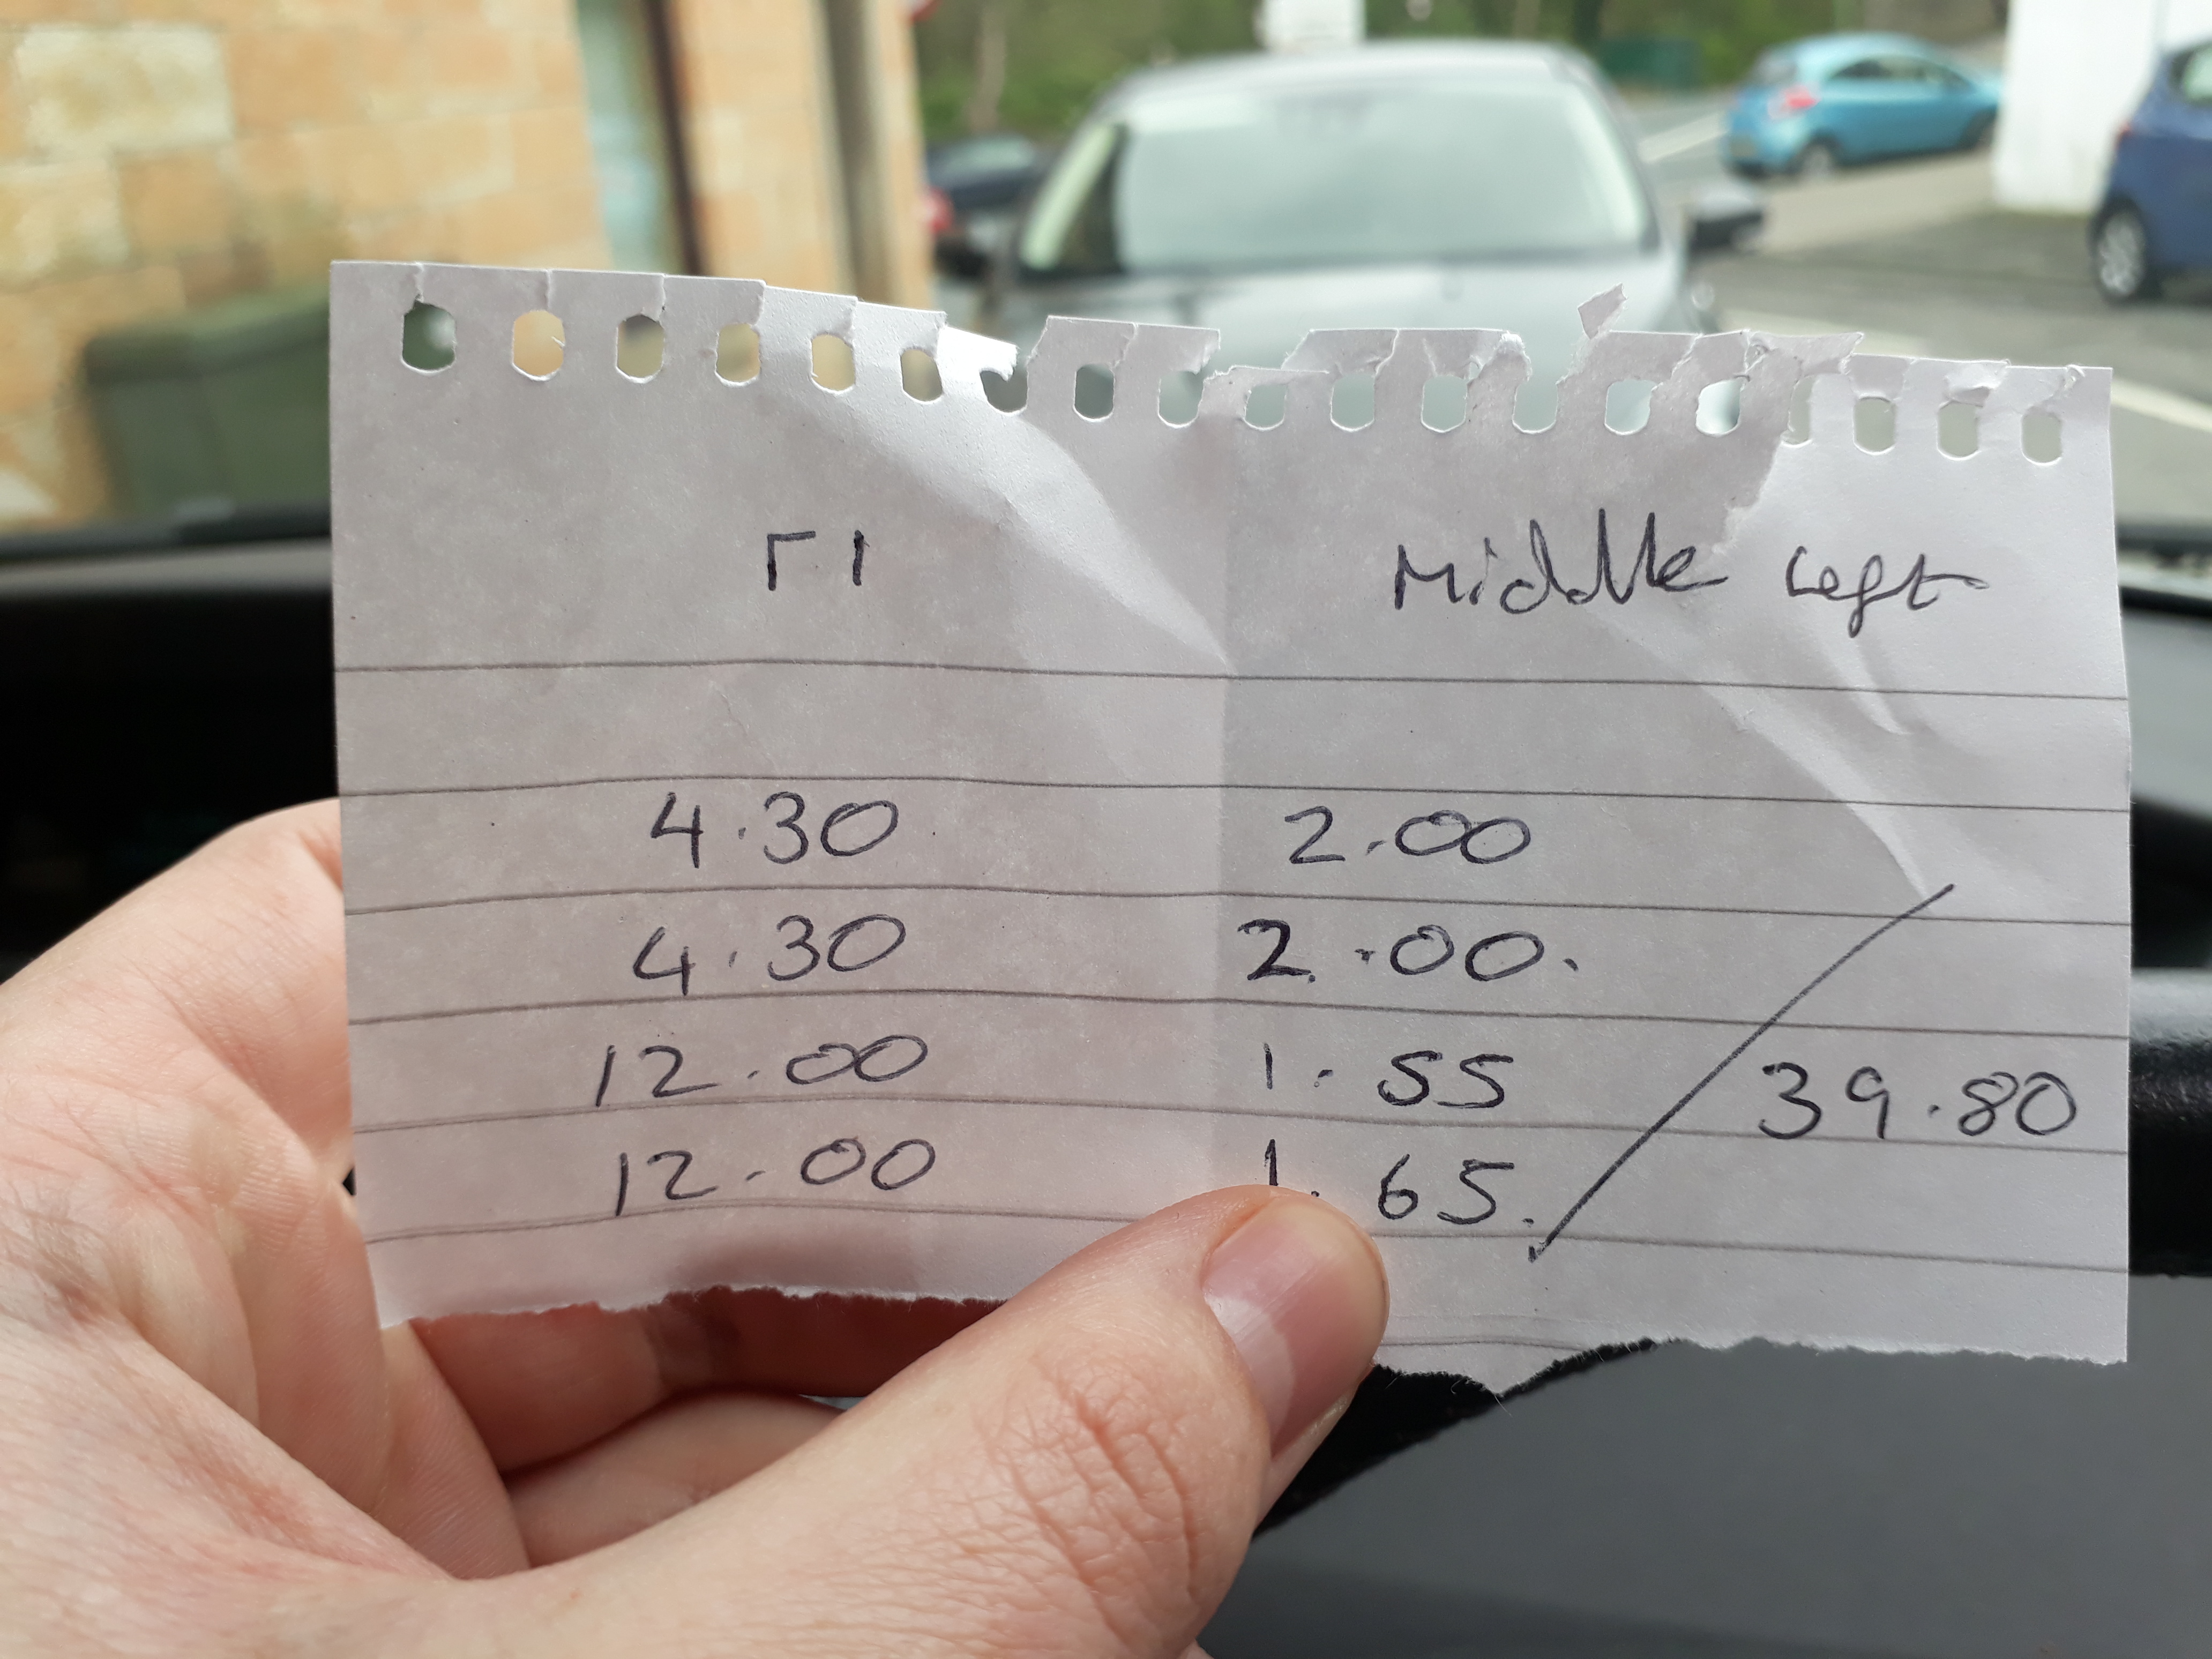 Γ1 Middle Left
4.30 2.00
4.30 2.00.
12.00 1.55 / 39.80
12.00 1.65.